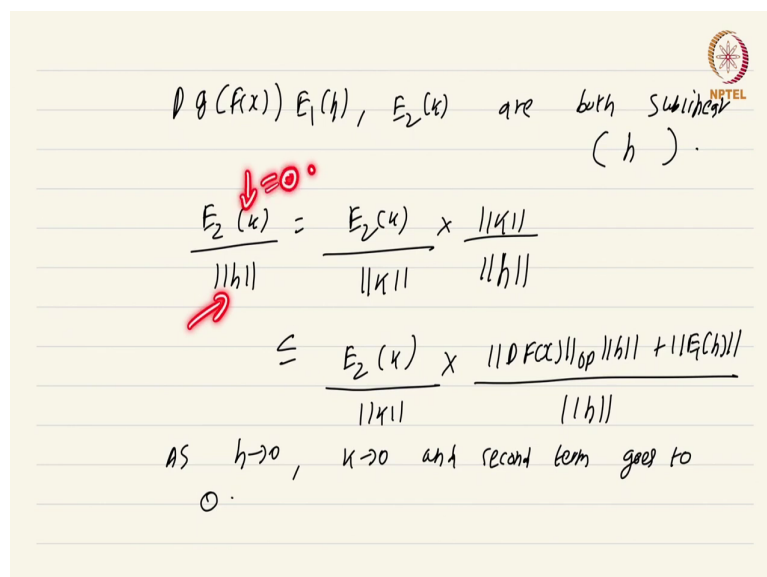 NPTEL
Dg(F(x)) E₁(h), E₂(k) are both sublinear
(h).
↓=0.
E₂(k)/||h|| = E₂(k)/||k|| × ||k||/||h||
≤ E₂(k)/||k|| × (||DF(x)||op ||h|| + ||E₁(h)||)/||h||
As h→0, k→0 and second term goes to
0.